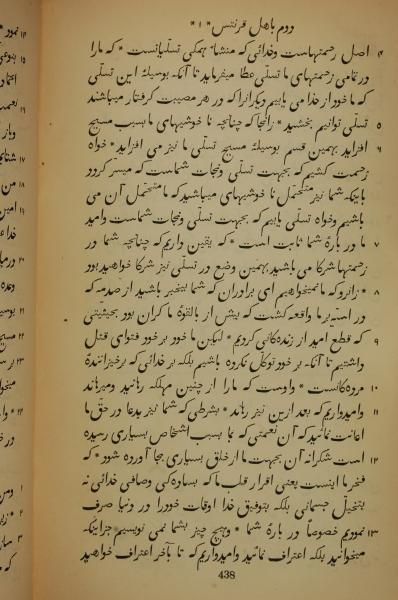 دوم باهل قرنتس * ۱ *
۴ اصل رحمتهاست وخدائی که منشاء همکی تسلیاتست * که مارا
در تمامی زحمتهای ما تسلی عطا میفرماید تا آنکه بوسیلهٔ این تسلی
که ما خود از خدا می یابیم دیکرانرا که در هر مصیبت کرفتار میباشند
۵ تسلی توانیم بخشید * زانجا که چنانچه نا خوشیهای ما بسبب مسیح
۶ افزاید بهمین قسم بوسیلهٔ مسیح تسلی ما نیز می افزاید * خواه
زحمت کشیم که بجهت تسلی ونجات شماست که میسر کرود
باینکه شما نیز متحمل نا خوشیهای میباشید که ما متحمل آن می
باشیم وخواه تسلی یابیم که بجهت تسلی ونجات شماست وامید
۷ ما در بارهٔ شما ثابت است * که یقین داریم که چنانچه شما در
زحمتها شرکا می باشید بهمین وضع در تسلی نیز شرکا خواهید بود
۸ * زانرو که ما نمیخواهیم ای برادران که شما بیخبر باشید از صدمهٔ که
در استیه بر ما واقعه کشت که بیش از بالقوهٔ ما کران بود بحیثیتی
۹ که قطع امید از زنده‌کانی کردیم * لیکن ما خود بر خود فتوای قتل
داشتیم تا آنکه بر خود توکل نکرده باشیم بلکه بر خدائی که برخیزانندهٔ
۱۰ مرده‌کانست * واوست که مارا از چنین مهلکه رهانید ومیرهاند
۱۱ وامیدواریم که بعد ازین نیز رهاند * بشرطی که شما نیز بدعا در حق ما
اعانت نمائید که آن نعمتی که بما بسبب اشخاص بسیاری رسیده
۱۲ است شکرانهٔ آن بجهت ما از خلق بسیاری بجا آورده شود * که
فخر ما اینست یعنی اقرار قلب ما که بساده‌کی وصافی خدائی نه
بتخیل جسمانی بلکه بتوفیق خدا اوقات خود را در دنیا صرف
۱۳ نمودیم خصوصاً در بارهٔ شما * وهیچ چیز بشما نمی نویسیم جز اینکه
میخوانید بلکه اعتراف نمائید وامیدواریم که تا بآخر اعتراف خواهید
438